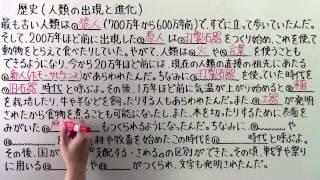 歴史(人類の出現と進化)
最も古い人類は④猿人(700万年から600万年前)で、すでに立って歩いていたんだ。
そして、200万年ほど前に出現した原人は打製石器をつくり始め、これを使って
動物をとらえて食べたりしていた。やがて、人類は火や言葉を使うことも
できるようになり、今から20万年ほど前には、現在の人類の直接の祖先にあたる
新人(ホモ・サピエンス)があらわれたんだ。ちなみに打製石器を使っていた時代を
旧石器時代と呼ぶよ。その後、1万年ほど前に気温が上がり始めると
を栽培したり、牛や羊などを飼したりもするようになったんだ。また、土器が発明
されたから食物を煮ることも可能になったし、木を切りたおすために表面を
みがいた もつくられるようになったんだね。ちなみに や
耕や牧畜を始めたこの時代を 時代と呼ぶよ。
その後、国が 支配する される の区別ができた。その頃、戦争や祭り
に用いる や がつくられ、文字も発明されたんだ。